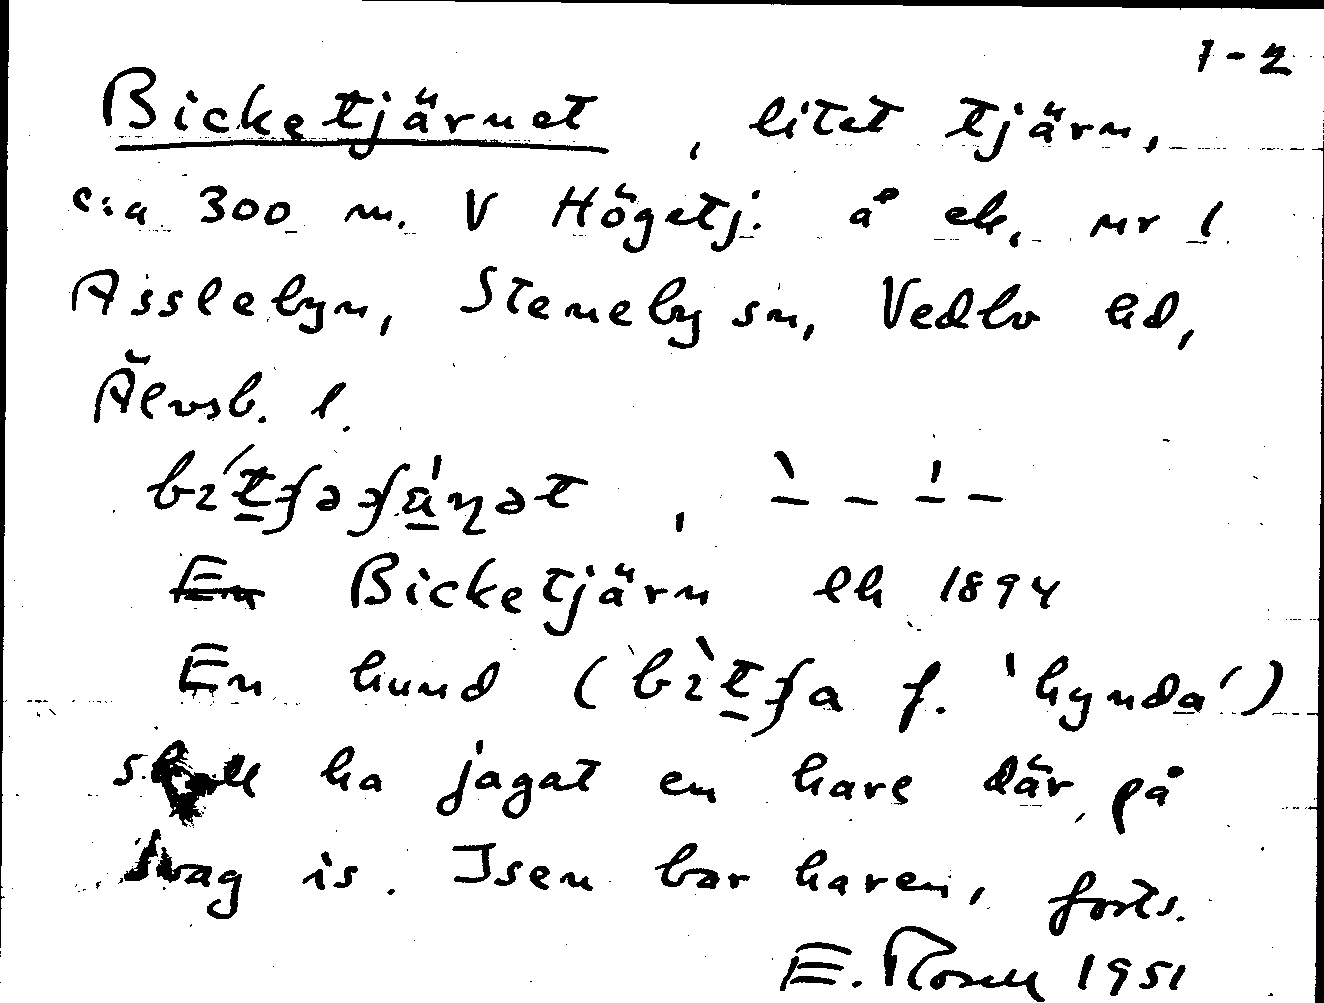 1-2
Bicketjärnet, litet tjärn,
c:a 300 m. V Högetj. å ek. nr 1
Asslebyn, Steneby sn, Vedbo hd,
Älvsb. l.
En Bicketjärn ek 1894
En hund ( f. 'hynda')
skall ha jagat en hare där på
svag is. Isen bar haren, forts.
E. Rosell 1951